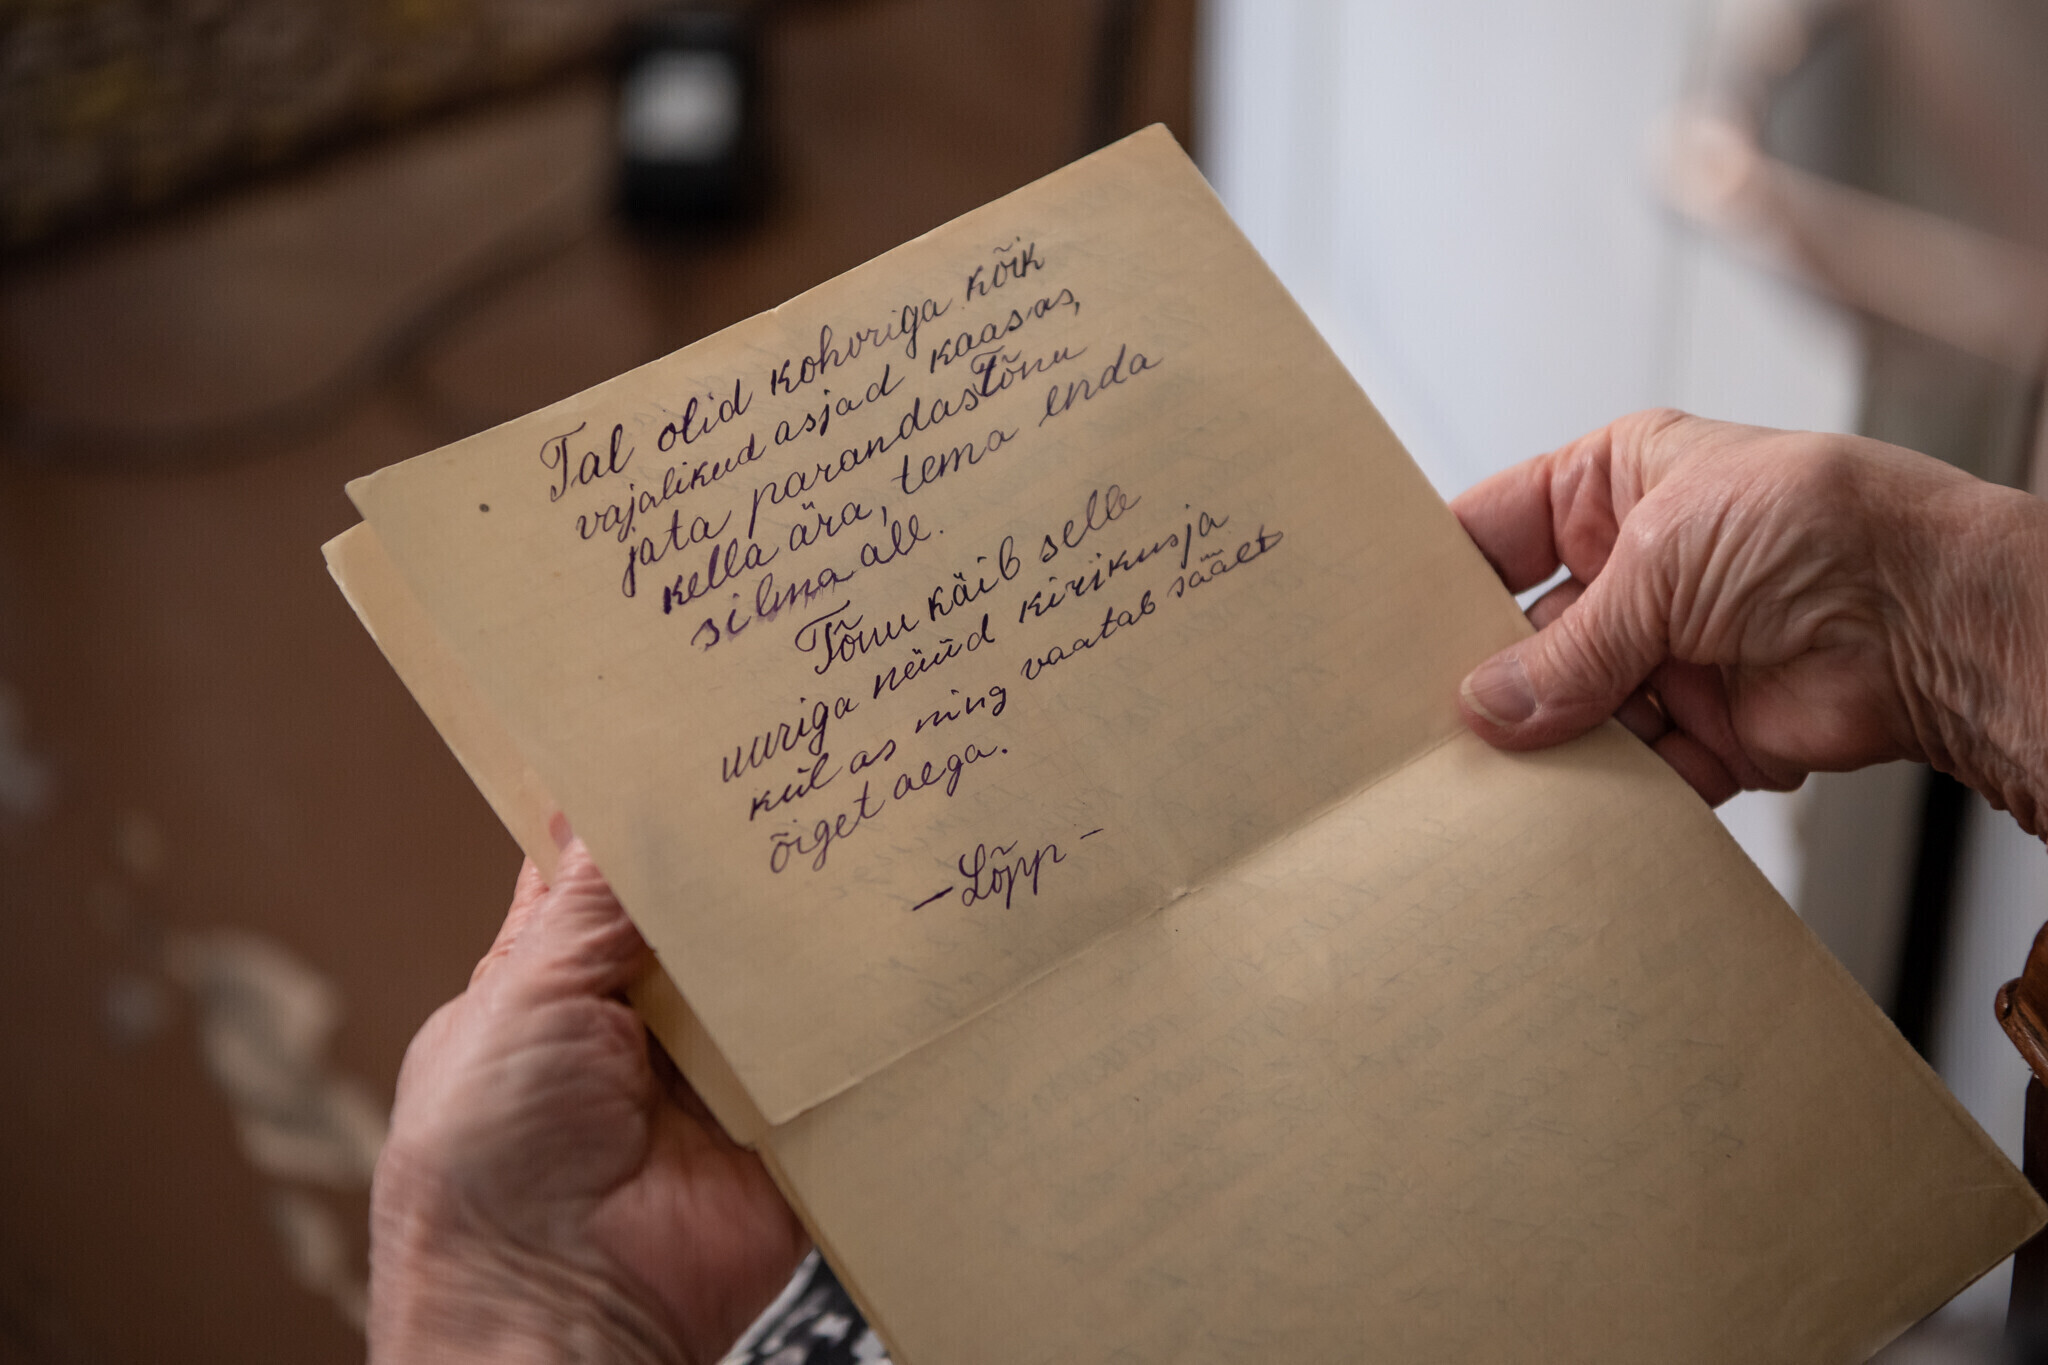 Tal olid kohvriga kõik
vajalikud asjad kaasas,
ja ta parandas Tõnu
kella ära, tema enda
silma all.
Tõnu käib selle
uuriga nüüd kirikus ja
külas ning vaatab säält
õiget aega.
— Lõpp —